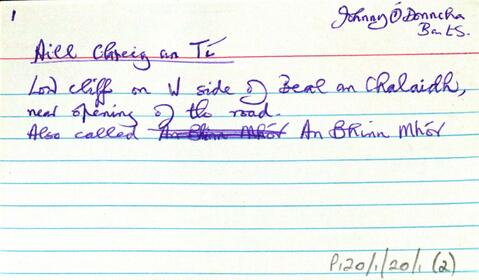 1
Johnny Ó Donncha
Baits.
Aill Chreig an Tí
Low cliff on W side of Beal an Chalaidh,
near opening of tho road.
Also called An Bhinn Mhór An Bhinn Mhór
P120/1/20/1 (2)